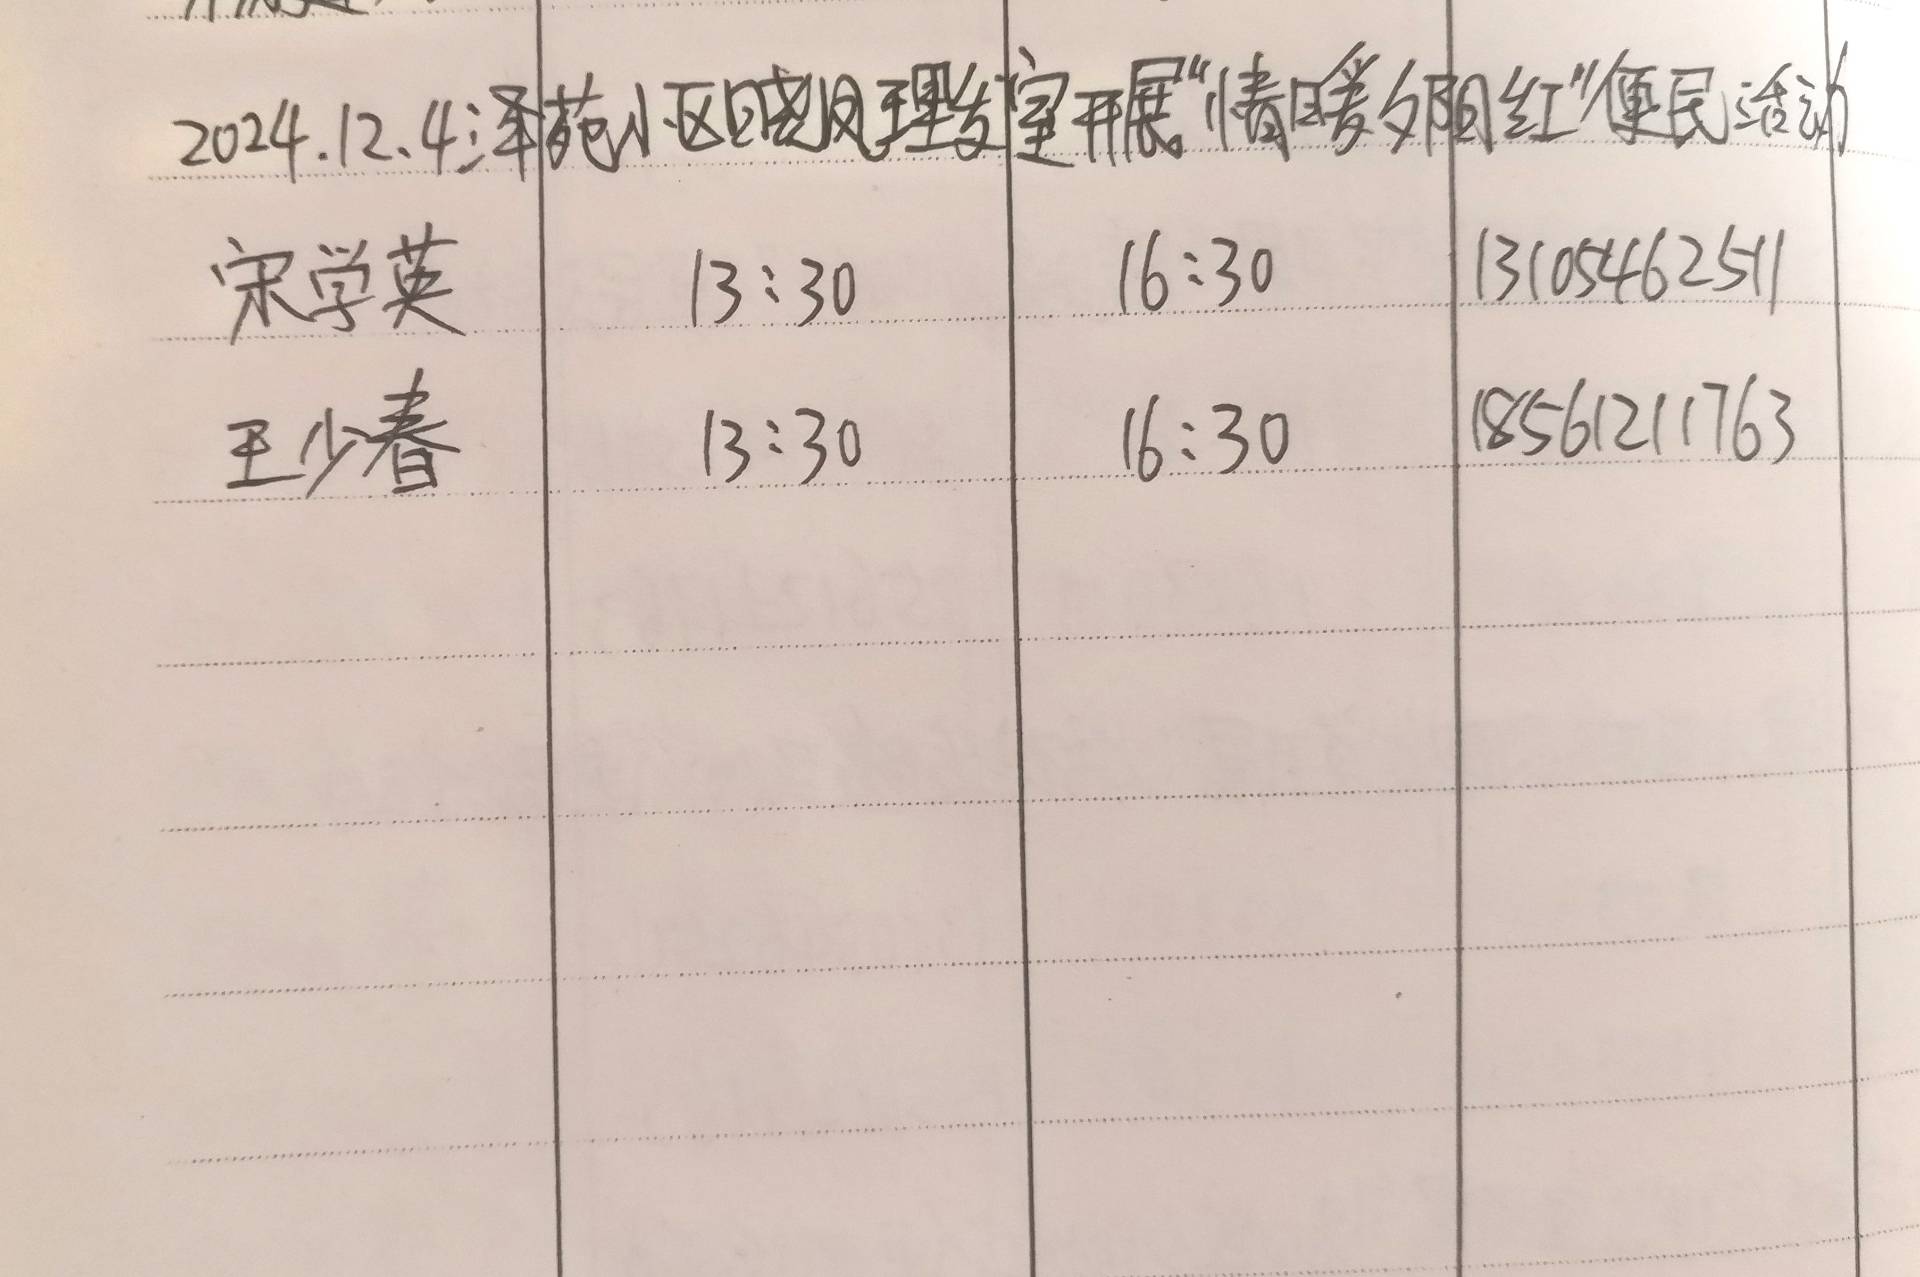 2024.12.4泽苑小区晓凤理发室开展“情暖夕阳红”便民活动
宋学英 13:30 16:30 13105462511
王少春 13:30 16:30 18561211763